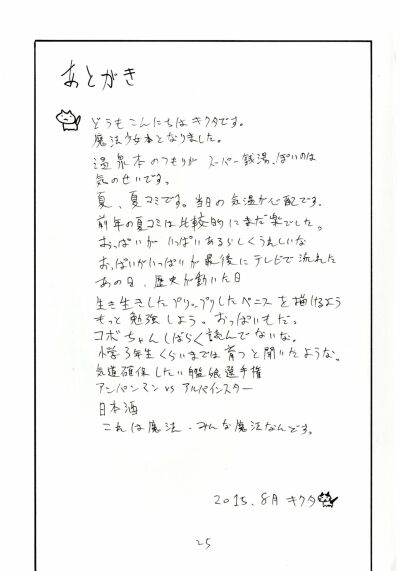 あとがき
どうもこんにちはキクタです。
魔法少女本となりました。
温泉本のつもりがスーパー銭湯っぽいのは
気のせいです。
夏、夏コミです。当日の気温が心配です。
前年の夏コミは比較的にまだ楽でした。
おっぱいがいっぱいあるらしくうれしいな
おっぱいがいっぱいが最後にテレビで流れた
あの日、歴史が動いた日
生き生きしたプリップリしたペニスを描けるよう
もっと勉強しよう。おっぱいもだ。
コボちゃんしばらく読んでないな。
小学3年生くらいまでは育つと聞いたような。
気道確保したい艦娘選手権
アンパンマン vs アルパインスター
日本酒
これは魔法・みんな魔法なんです。
2015.8月 キクタ
25